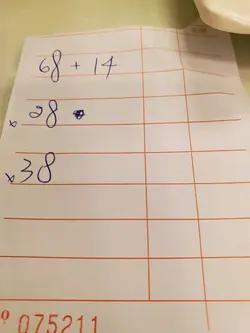 68 + 14
x 28
x 38
075211